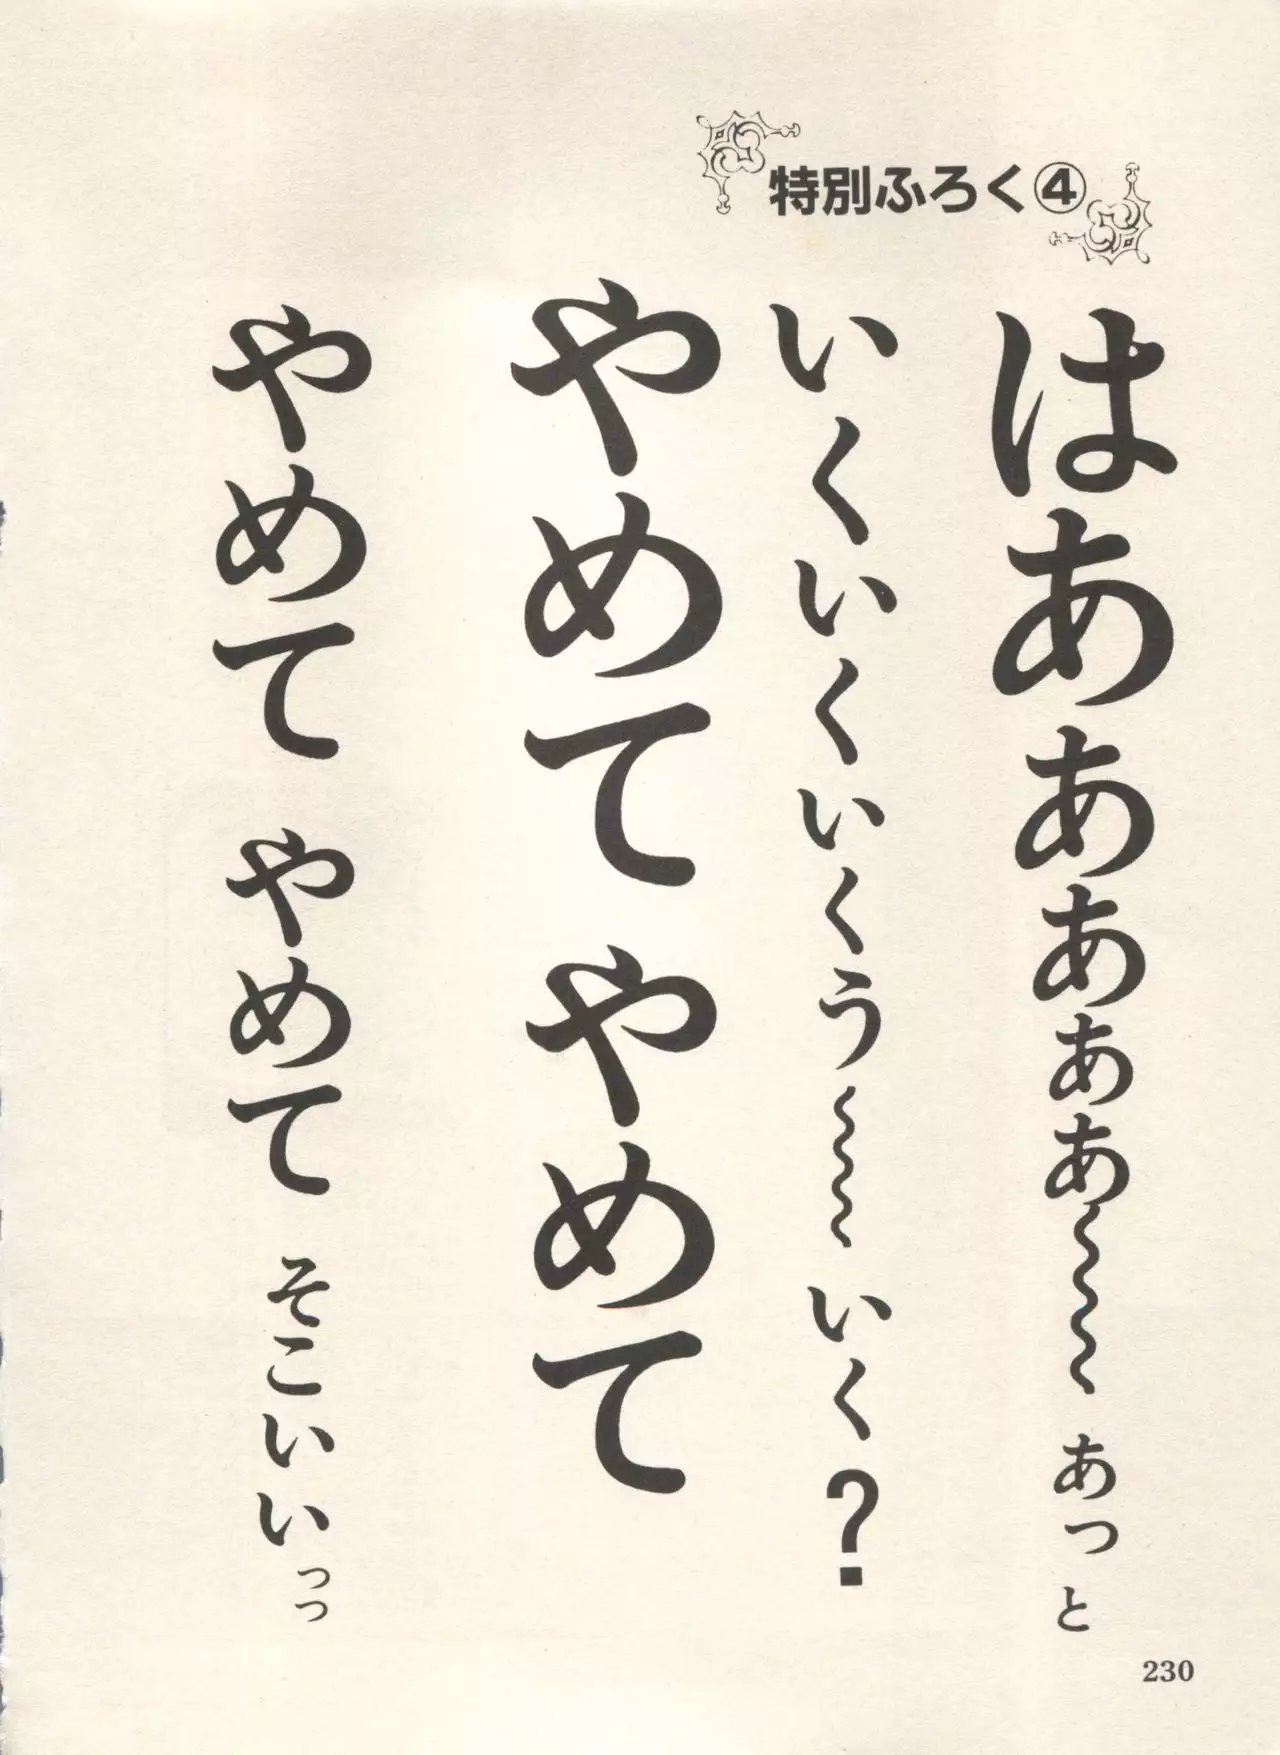 特別ふろく④
はあああああ〜〜〜〜 あっと
いくいくいくう〜〜〜 いく?
やめて やめて
やめて やめて そこいいっっ
230